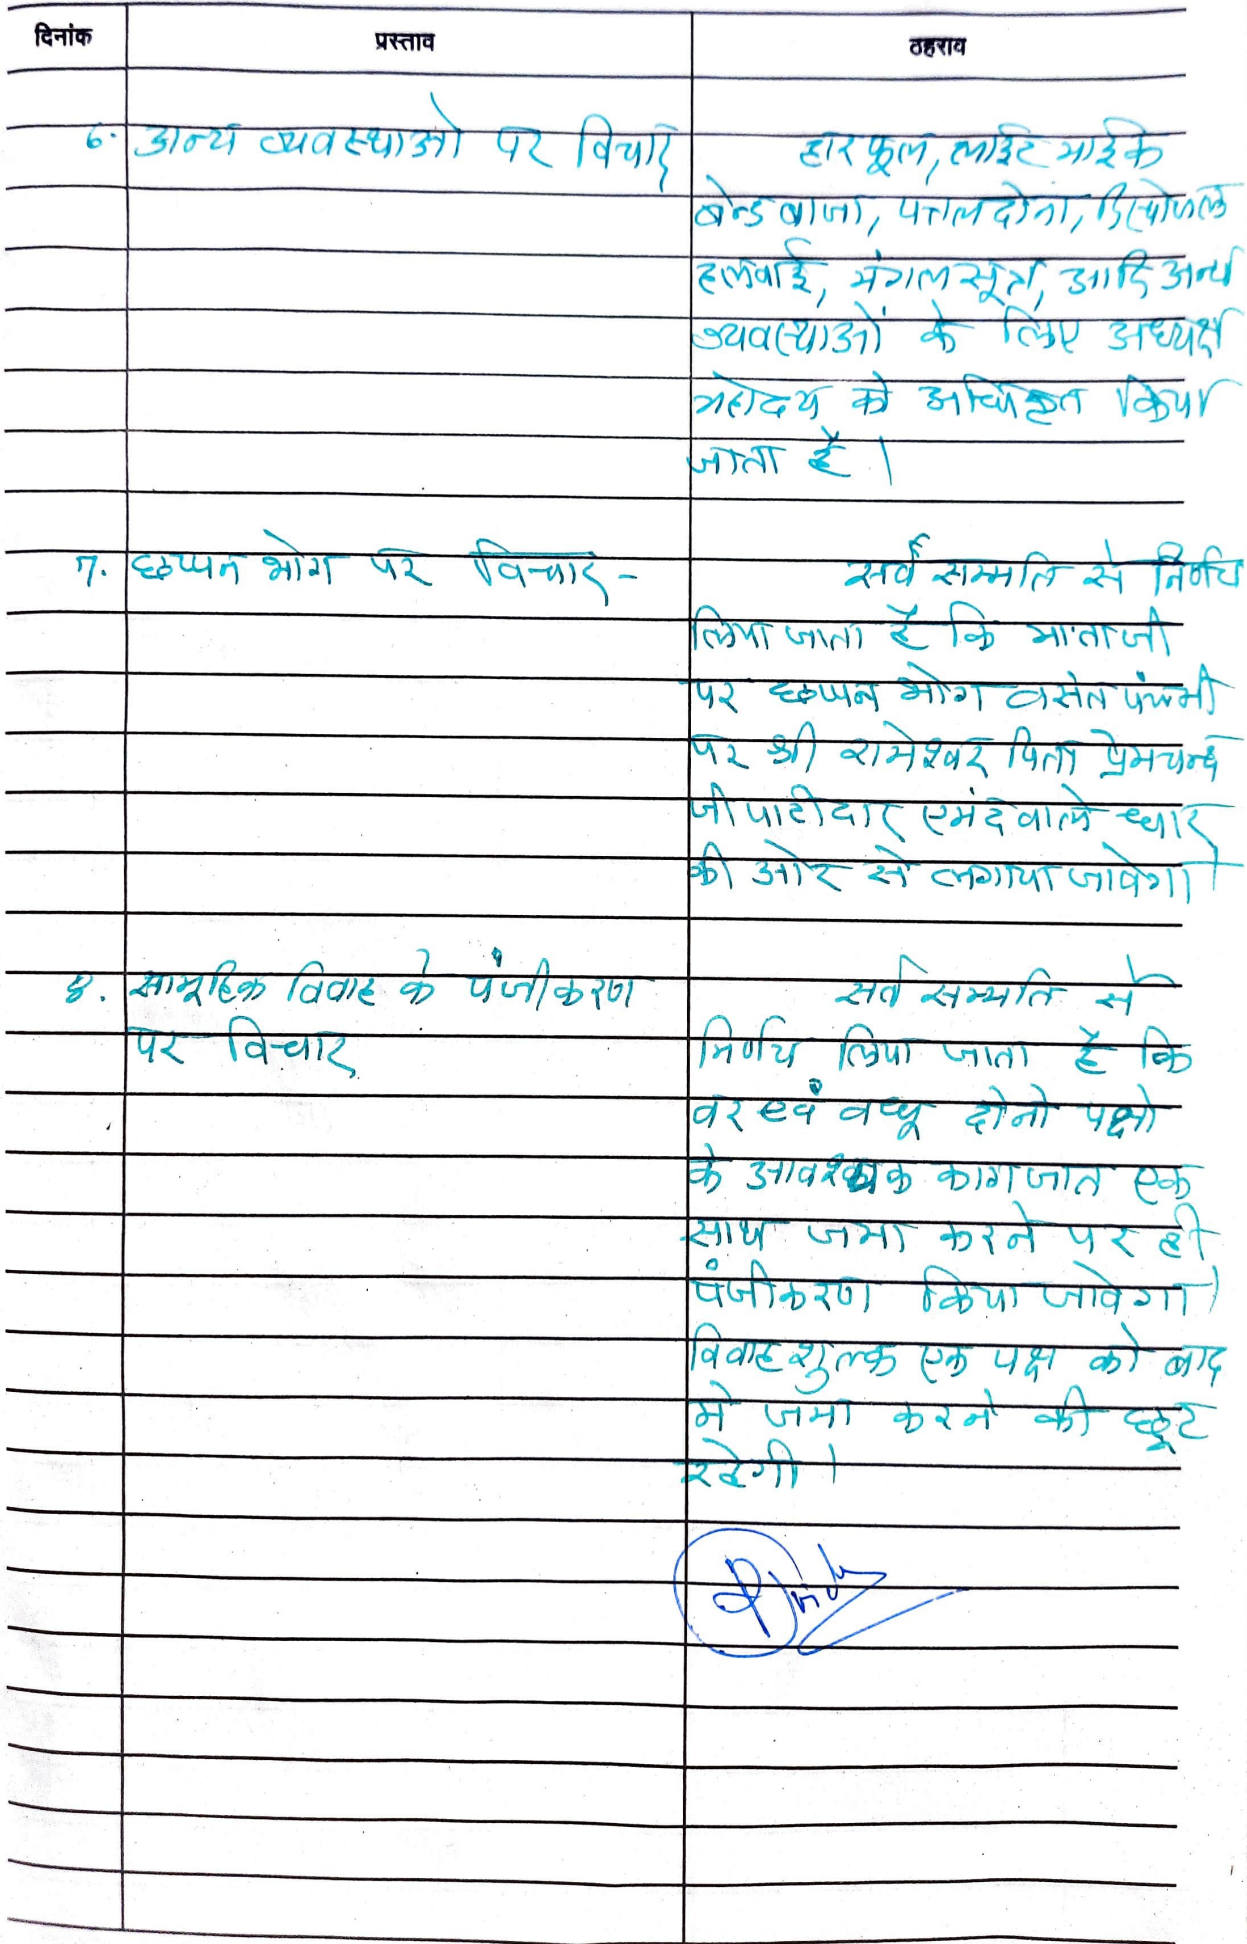 दिनांक प्रस्ताव ठहराव
6. अन्य व्यवस्थाओ पर विचार हार फूल, लाईट माईक
बेन्ड बाजा, पत्तल दोना, डिस्पोजल
हलवाई, मंगल सूत्र, आदि अन्य
व्यवस्थाओं के लिए अध्यक्ष
महोदय को अधिकृत किया
जाता है ।
7. छप्पन भोग पर विचार - सर्व सम्मति से निर्णय
लिया जाता है कि माताजी
पर छप्पन भोग वसंत पंचमी
पर श्री रामेश्वर पिता प्रेमचन्द
जी पाटीदार वाले धार
की ओर से लगाया जावेगा ।
8. सामूहिक विवाह के पंजीकरण सर्व सम्मति से
पर विचार निर्णय लिया जाता है कि
वर एवं वधू दोनो पक्षो
के आवश्यक कागजात एक
साथ जमा करने पर ही
पंजीकरण किया जावेगा ।
विवाह शुल्क एक पक्ष को बाद
मे जमा करने की छूट
रहेगी ।